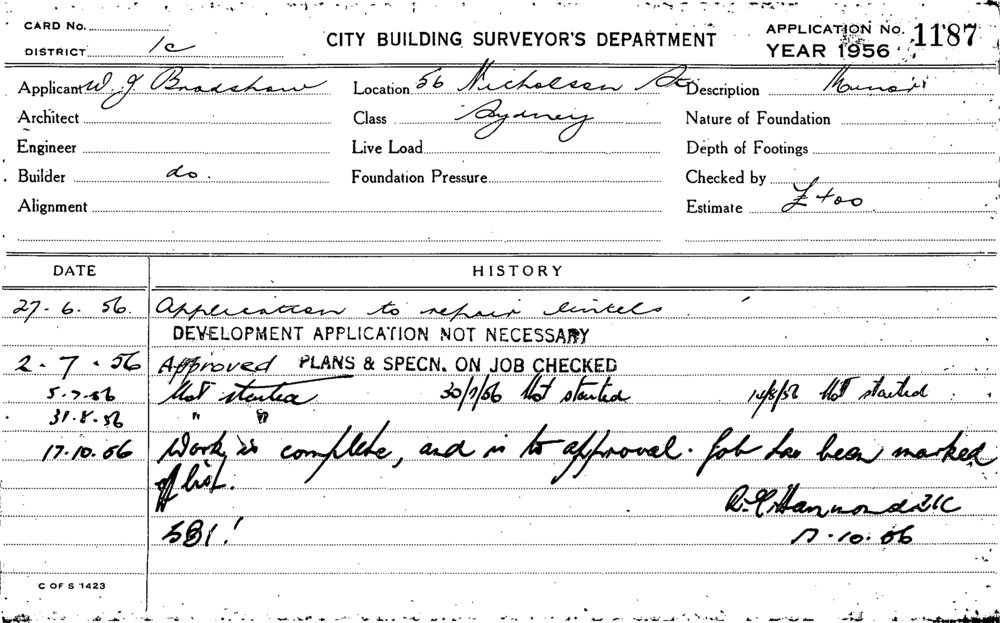 CARD No.
DISTRICT 1c
CITY BUILDING SURVEYOR'S DEPARTMENT
APPLICATION No. 1187
YEAR 1956
Applicant W. J. Bradshaw Location 56 Nicholson St Description Minor
Architect Class Sydney Nature of Foundation
Engineer Live Load Depth of Footings
Builder do. Foundation Pressure Checked by
Alignment Estimate £400
DATE HISTORY
27-6.56. Application to repair lintels.
DEVELOPMENT APPLICATION NOT NECESSARY
2-7-56 Approved PLANS & SPECN. ON JOB CHECKED
5-7-56 Not started 30/7/56 Not started 14/8/56 Not started
31-8-56 " "
17.10.56 Work is complete, and is to approval. Job has been marked
off list.
R. Hammond
581! 17.10.56
C OF S 1423